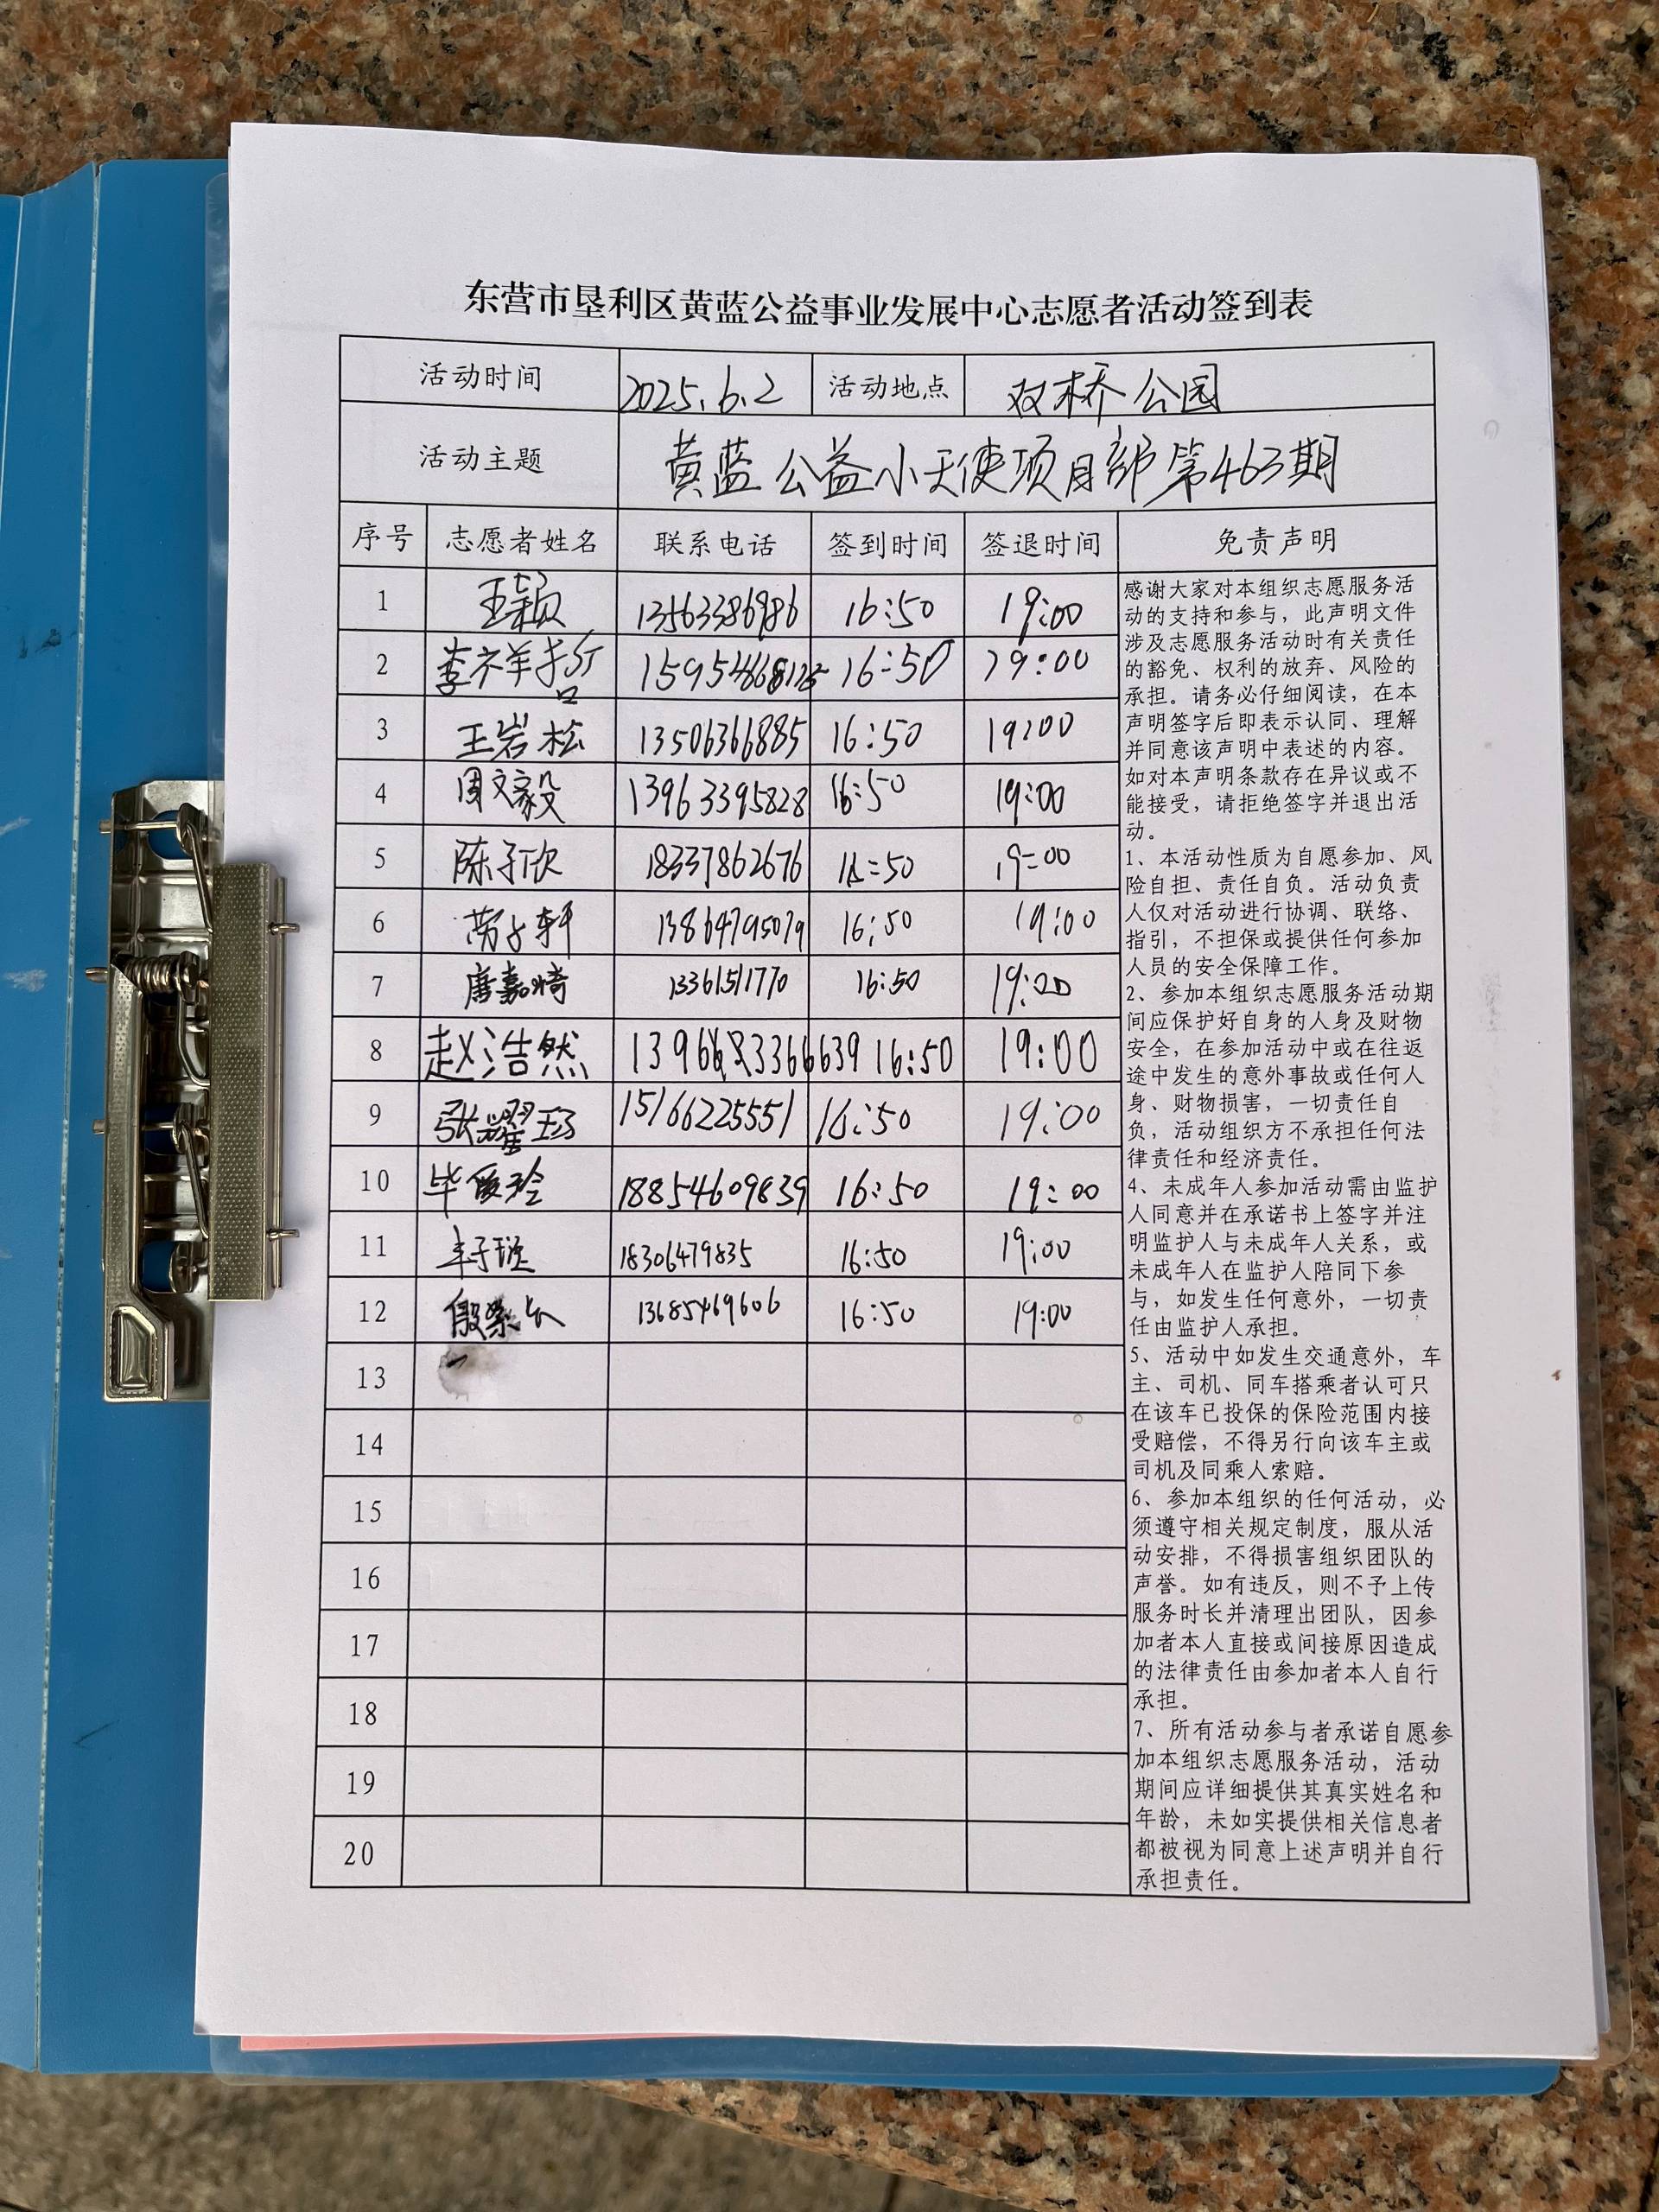 东营市垦利区黄蓝公益事业发展中心志愿者活动签到表
活动时间 2025.6.2 活动地点 双桥公园
活动主题 黄蓝公益小天使项目部第463期
序号 志愿者姓名 联系电话 签到时间 签退时间 免责声明
1 王颖 13563386986 16:50 19:00
2 李祥哲 16:50 19:00
3 王岩松 13506366885 16:50 19:00
4 周文毅 13963395828 16:50 19:00
5 陈子欣 18337862676 16:50 19:00
6 13864795079 16:50 19:00
7 唐嘉崎 13361511770 16:50 19:00
8 赵浩然 16:50 19:00
9 张耀 15166225551 16:50 19:00
10 毕 18854609839 16:50 19:00
11 18306479835 16:50 19:00
12 殷 13685469606 16:50 19:00
13
14
15
16
17
18
19
20
感谢大家对本组织志愿服务活
动的支持和参与，此声明文件
涉及志愿服务活动时有关责任
的豁免、权利的放弃、风险的
承担。请务必仔细阅读，在本
声明签字后即表示认同、理解
并同意该声明中表述的内容。
如对本声明条款存在异议或不
能接受，请拒绝签字并退出活
动。
1、本活动性质为自愿参加、风
险自担、责任自负。活动负责
人仅对活动进行协调、联络、
指引，不担保或提供任何参加
人员的安全保障工作。
2、参加本组织志愿服务活动期
间应保护好自身的人身及财物
安全，在参加活动中或在往返
途中发生的意外事故或任何人
身、财物损害，一切责任自
负，活动组织方不承担任何法
律责任和经济责任。
4、未成年人参加活动需由监护
人同意并在承诺书上签字并注
明监护人与未成年人关系，或
未成年人在监护人陪同下参
与，如发生任何意外，一切责
任由监护人承担。
5、活动中如发生交通意外，车
主、司机、同车搭乘者认可只
在该车已投保的保险范围内接
受赔偿，不得另行向该车主或
司机及同乘人索赔。
6、参加本组织的任何活动，必
须遵守相关规定制度，服从活
动安排，不得损害组织团队的
声誉。如有违反，则不予上传
服务时长并清理出团队，因参
加者本人直接或间接原因造成
的法律责任由参加者本人自行
承担。
7、所有活动参与者承诺自愿参
加本组织志愿服务活动，活动
期间应详细提供其真实姓名和
年龄，未如实提供相关信息者
都被视为同意上述声明并自行
承担责任。